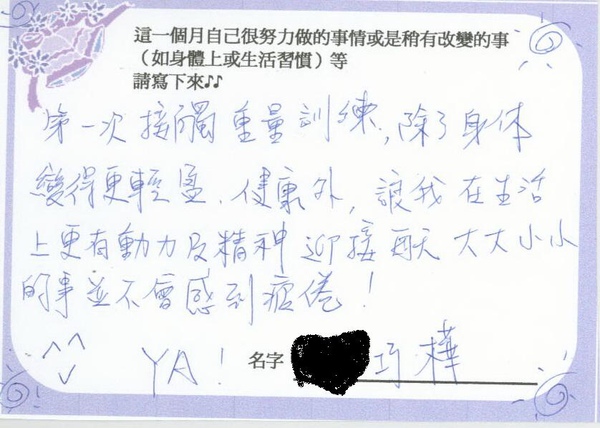 這一個月自己很努力做的事情或是稍有改變的事
（如身體上或生活習慣）等
請寫下來♪♪
第一次接觸重量訓練,除了身体
變得更輕盈、健康外，讓我在生活
上更有動力及精神迎接每天大大小小
的事並不會感到疲倦！
YA! 名字 巧樺